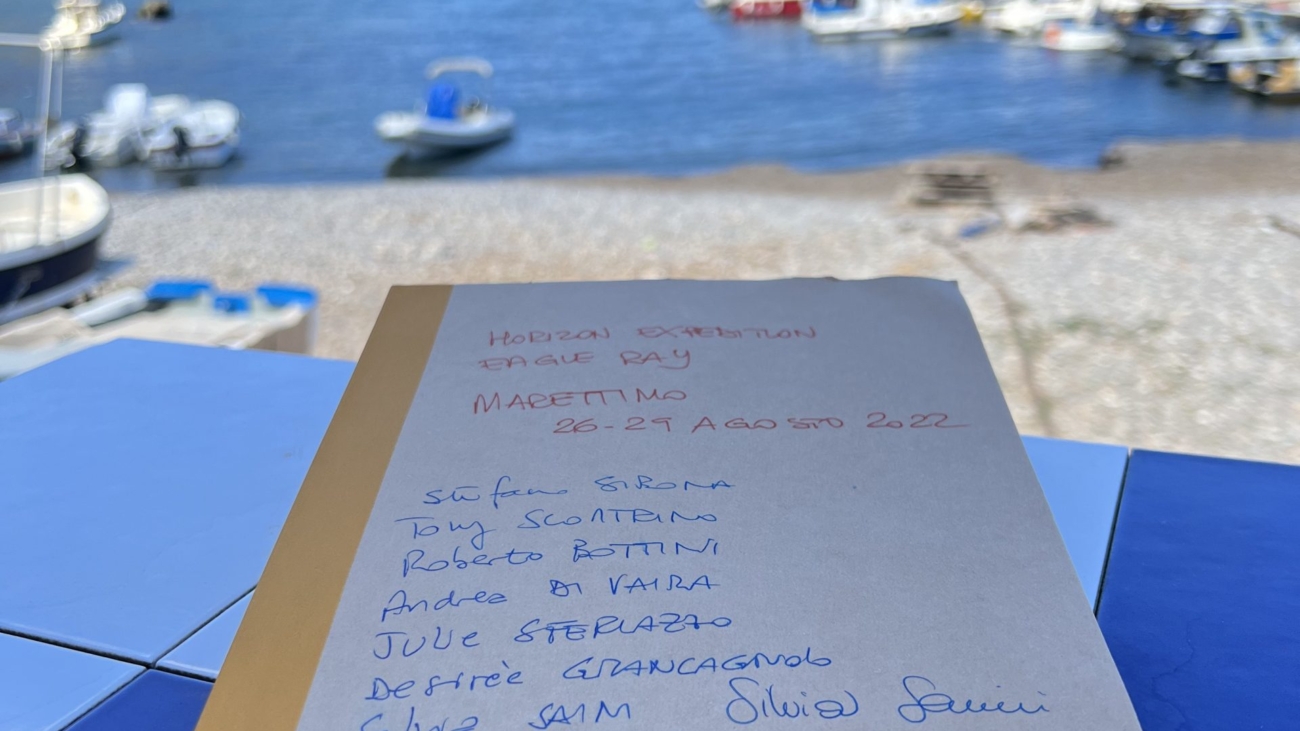 HORIZON EXPEDITION
EAGLE RAY
MARETTIMO
26-29 AGOSTO 2022
Stefano SIBONA
Tony SCONTRINO
Roberto BOTTINI
Andrea DI VAIRA
JULIE STERLAZZO
Desirèe GRANCAGNOLO
Silvia